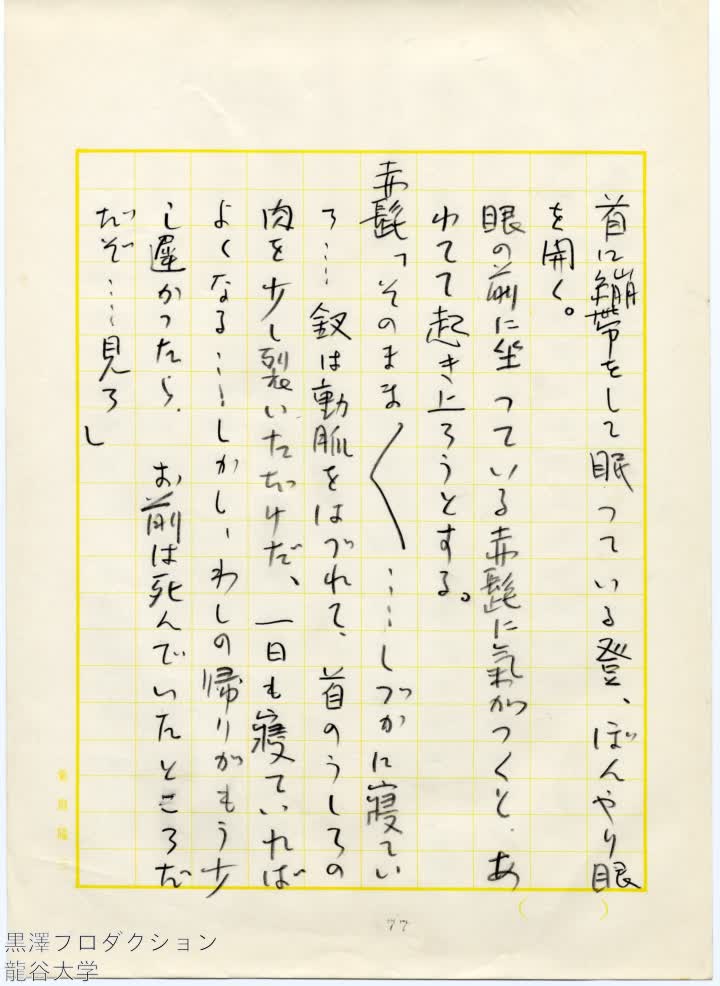 首に繃帯をして眠っている登、ぼんやり眼
を開く。
眼の前に坐っている赤髭に気がつくと、あ
わてて起き上ろうとする。
赤髭「そのまま〱……しづかに寝てい
ろ……釵は動脈をはづれて、首のうしろの
肉を少し裂いただけだ、一日も寝ていれば
よくなる……しかし、わしの帰りがもう少
し遅かったら、お前は死んでいたところだ
だぞ……見ろ」
77
黒澤プロダクション
龍谷大学